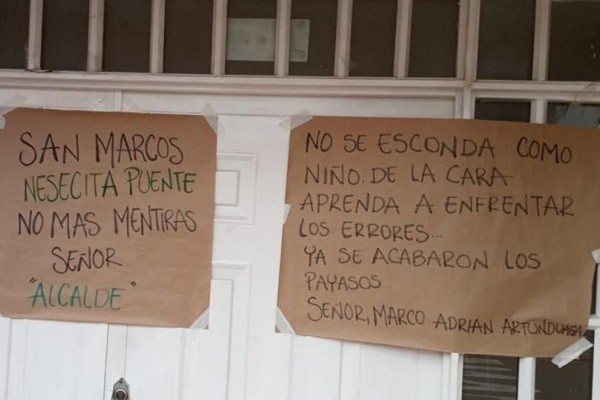 SAN MARCOS
NESECITA PUENTE
NO MAS MENTIRAS
SEÑOR
"ALCALDE"
NO SE ESCONDA COMO
NIÑO. DE LA CARA
APRENDA A ENFRENTAR
LOS ERRORES...
YA SE ACABARON LOS
PAYASOS
SEÑOR, MARCO ADRIAN ARTUNDUAGA